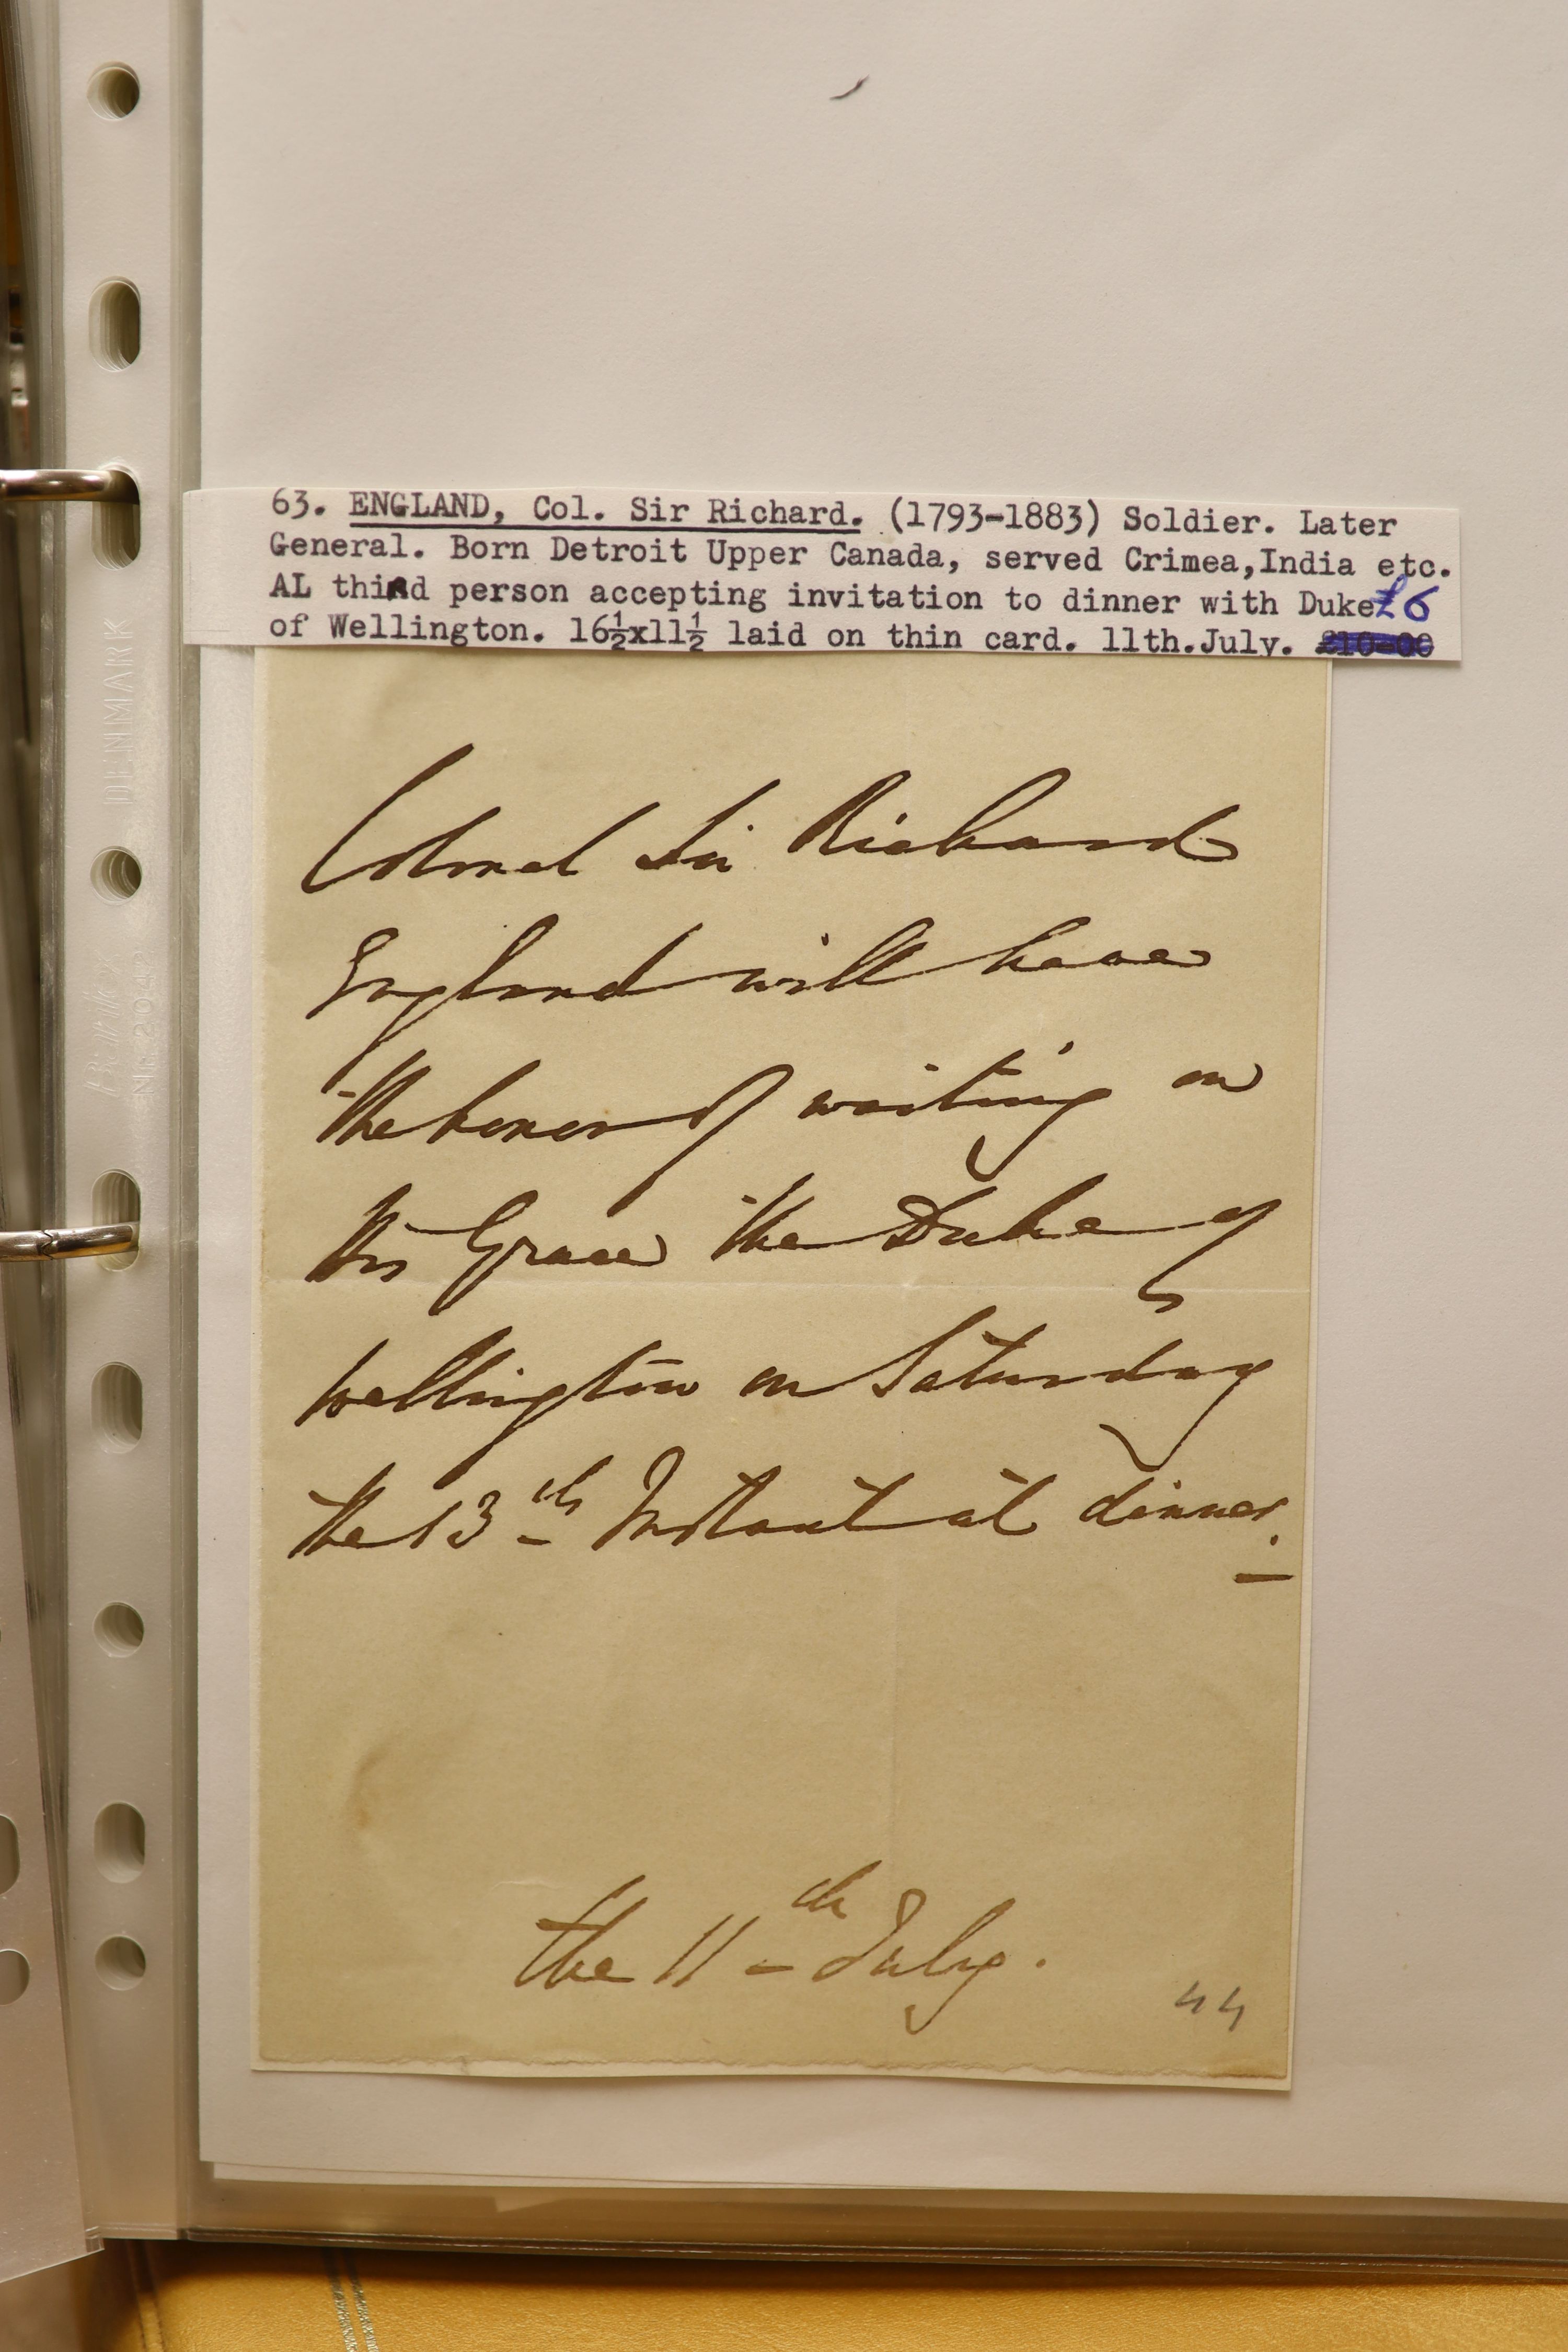 63. ENGLAND, Col. Sir Richard. (1793-1883) Soldier. Later
General. Born Detroit Upper Canada, served Crimea,India etc.
AL third person accepting invitation to dinner with Duke £6
of Wellington. 16½x11½ laid on thin card. 11th.July. £10-00
Colonel Sir Richard
England will have
the honor of waiting on
His Grace the Duke of
Wellington on Saturday
the 13th Instant at dinner.
the 11th July.
44
DENMARK
Nr. 2042